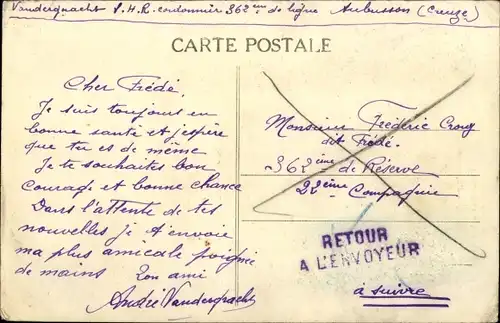 Vandergnacht S.H.R. cordonnier 362ème de ligne Aubusson (Creuze)
CARTE POSTALE
Cher Frédé.
Je suis toujours en
bonne santé et j'espère
que tu es de même
Je te souhaites bon
courage et bonne chance
Dans l'attente de tes
nouvelles je t'envoie
ma plus amicale poignée
de mains
Ton ami
André Vandergnacht
Monsieur Frédéric Crouy
dit Frédé.
362ème de Réserve
22ème Compagnie
RETOUR
A L'ENVOYEUR
à suivre